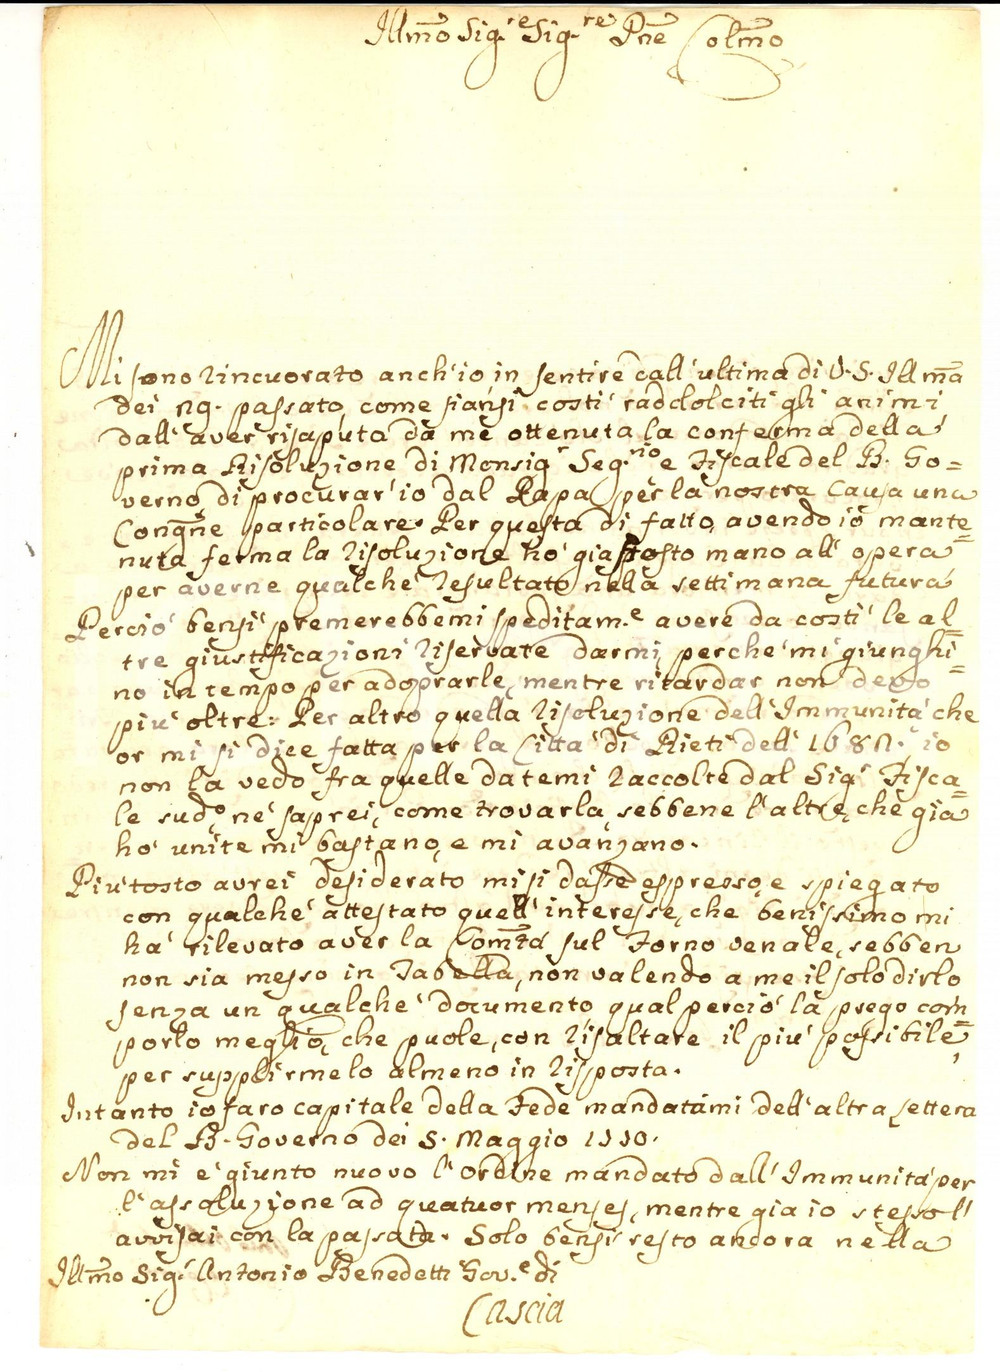 Illmõ Sig.re Sig.re Pñe Colmõ
Mi sono rincuorato anch'io in sentire call'ultima di V.S. Illmã
dei 29. passato, come siansi costi' raddolciti gli animi
dall'aver risaputa da me ottenuta la conferma della
prima Risoluzione di Monsig.r Seg.rio e Fiscale del B. Go=
verno di procurar'io dal Papa per la nostra Causa una
Congñe particolare. Per questa di fatto avendo io mante=
nuta ferma la risoluzione ho' gia posto mano all'opera
per averne qualche resultato nella settimana futura
Percio' bensi' premerebbemi speditam.e avere da costi' le al=
tre giustificazioni riservate darmi, perche' mi giunghi=
no in tempo per adoprarle, mentre ritardar non devo
piu' oltre. Per altro quella risoluzione dell'Immunita' che
or mi si dice fatta per la Citta' di Rieti dell' 1682. io
non la vedo fra quelle datemi raccolte dal Sig.r Fisca=
le sud.o ne' saprei, come trovarla, sebbene l'altre, che gia
ho' unite mi bastano, e mi avanzano.
Piu'tosto avrei desiderato mi si dasse espresso, e spiegato
con qualche' attestato quell'interesse, che benissimo mi
ha' rilevato aver la Com.tà sul Forno venale, sebben
non sia messo in Tabella, non valendo a me il solo dirlo
senza un qualche' documento qual percio' la prego com=
porlo meglio, che puole, con risaltare il piu' possibile,
per supplirmelo almeno in risposta.
Intanto io faro capitale della Fede mandatami dell'altra Lettera
del B. Governo dei 5. Maggio 1770.
Non mi e' giunto nuovo l'ordine mandato dall'Immunita' per
l'assoluzione ad quatuor menses, mentre gia io stesso l'
avvisai con la passata. Solo bensi' resto ancora nella
Illmõ Sig.r Antonio Benedetti Gov.e di
Cascia